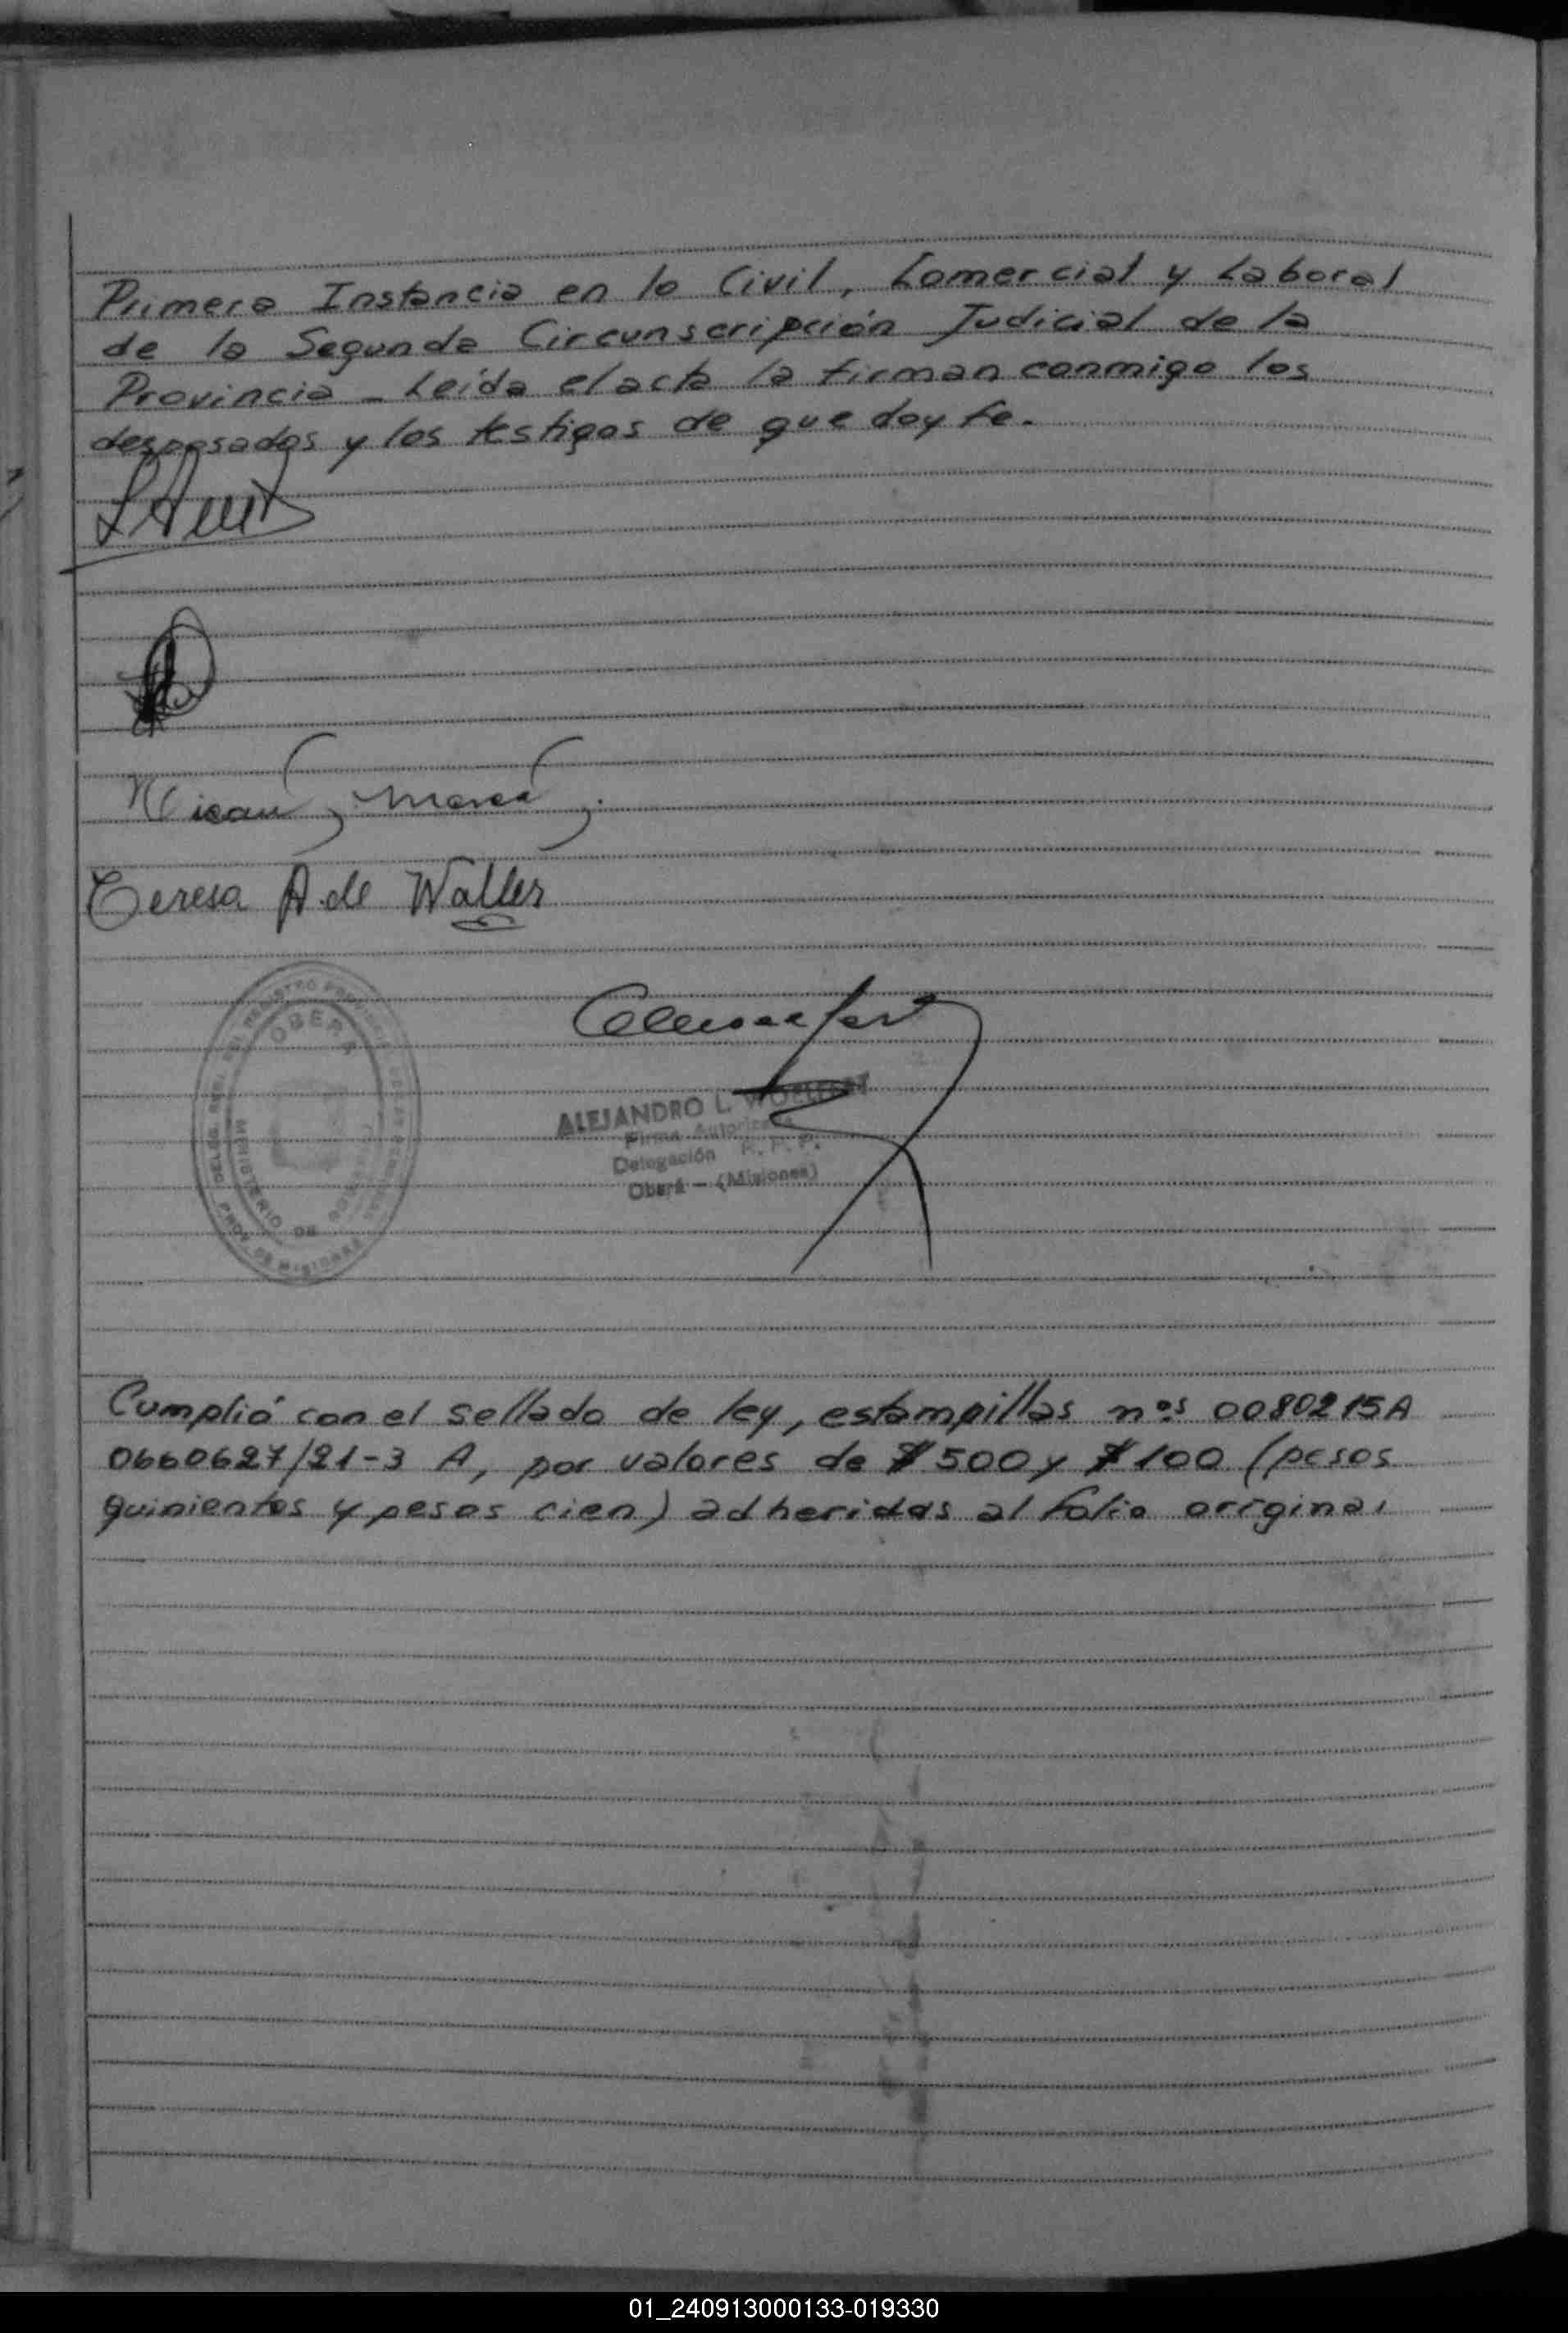 Primera Instancia en lo Civil, Comercial y Laboral
de la Segunda Circunscripción Judicial de la
Provincia - Leída el acta la firman conmigo los
desposados y los testigos de que doy fe.
Teresa A. de Walles
OBERA
MINISTERIO DE
PROV. DE MISIONES
ALEJANDRO L.
Firma Autorizada
Delegación R. P. P.
Oberá - (Misiones)
Cumplió con el sellado de ley, estampillas nos 0080215A
0660627/21-3 A, por valores de $ 500 y $ 100 (pesos
quinientos y pesos cien) adheridas al folio original
01_240913000133-019330